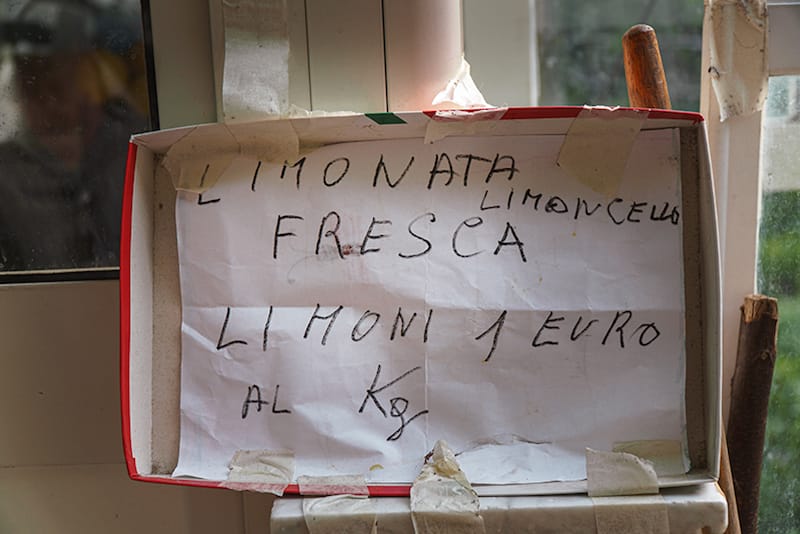 LIMONATA
LIMONCELLO
FRESCA
LIMONI 1 EURO
AL Kg